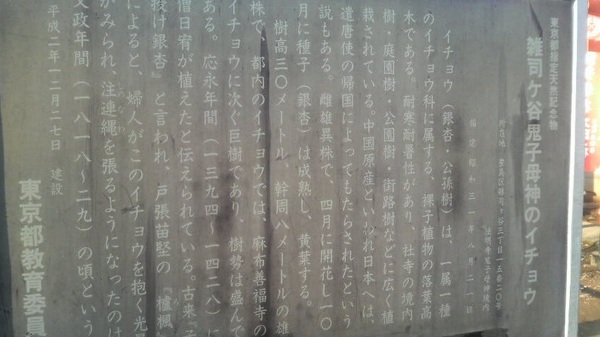 東京都指定天然記念物
雑司ケ谷鬼子母神のイチョウ
所在地 豊島区雑司ケ谷三丁目一五番二〇号
法明寺鬼子母神境内
指定 昭和三一年八月二一日
イチョウ（銀杏・公孫樹）は、一属一種
のイチョウ科に属する、裸子植物の落葉高
木である。耐寒耐暑性があり、社寺の境内
樹・庭園樹・公園樹・街路樹などに広く植
栽されている。中国原産といわれ日本へは、
遣唐使の帰国によってもたらされたという
説もある。雌雄異株で、四月に開花し一〇
月に種子（銀杏）は成熟し、黄葉する。
樹高三〇メートル、幹周八メートルの雄
株で、都内のイチョウでは、麻布善福寺の
イチョウに次ぐ巨樹であり、樹勢は盛んで
ある。応永年間（一三九四〜一四二八）に
僧日宥が植えたと伝えられている。古来「子
授け銀杏」と言われ、戸張苗堅の『櫨楓』
によると 婦人がこのイチョウを抱く光景
がみられ、注連縄を張るようになったのは
しめなわ
文政年間（一八一八〜二九）の頃という
平成二年一二月二七日 建設
東京都教育委員